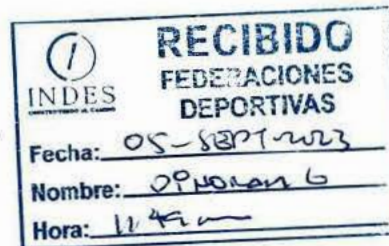 RECIBIDO
FEDERACIONES
DEPORTIVAS
INDES
Fecha: 05-SEPT-2023
Nombre:
Hora: 11:49